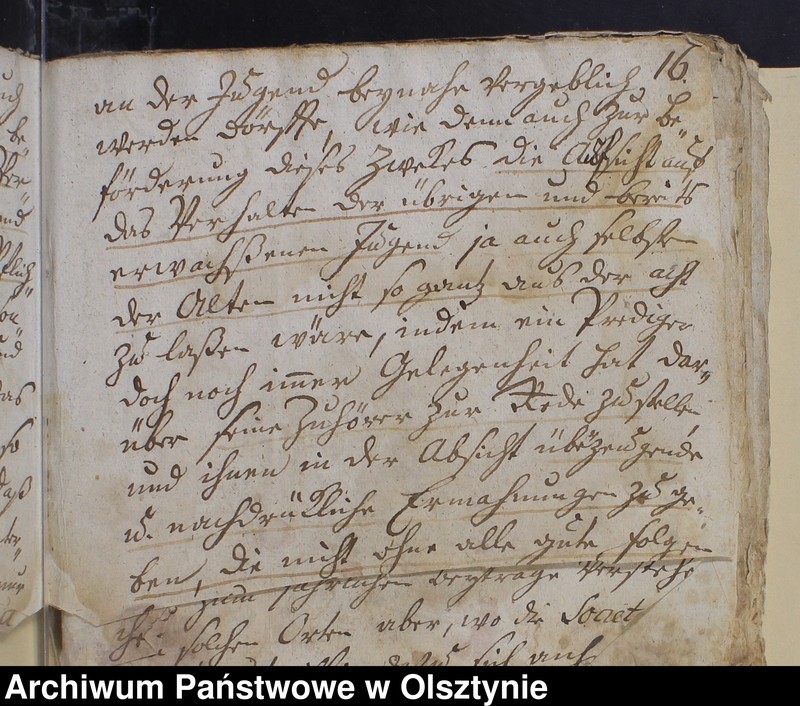 16.
an der Jugend beynahe vergeblich
werden dörffte, wie denn auch zur be
förderung dieses Zwekes die Aufsicht auf
das Verhalten der übrigen und bereits
erwachßenen Jugend ja auch selbsten
der Alten nicht so gantz aus der acht
zu laßen wäre, indem ein Prediger
doch noch immer Gelegenheit hat dar=
über seine Zuhörer zur Rede zu stellen
und ihnen in der Absicht überzeugende
u. nachdrükliche Ermahnungen zu ge=
ben, die nicht ohne alle gute folgen
zum beytrage verstehe
solchen Orten aber, wo die Societ
sich auch
Archiwum Państwowe w Olsztynie